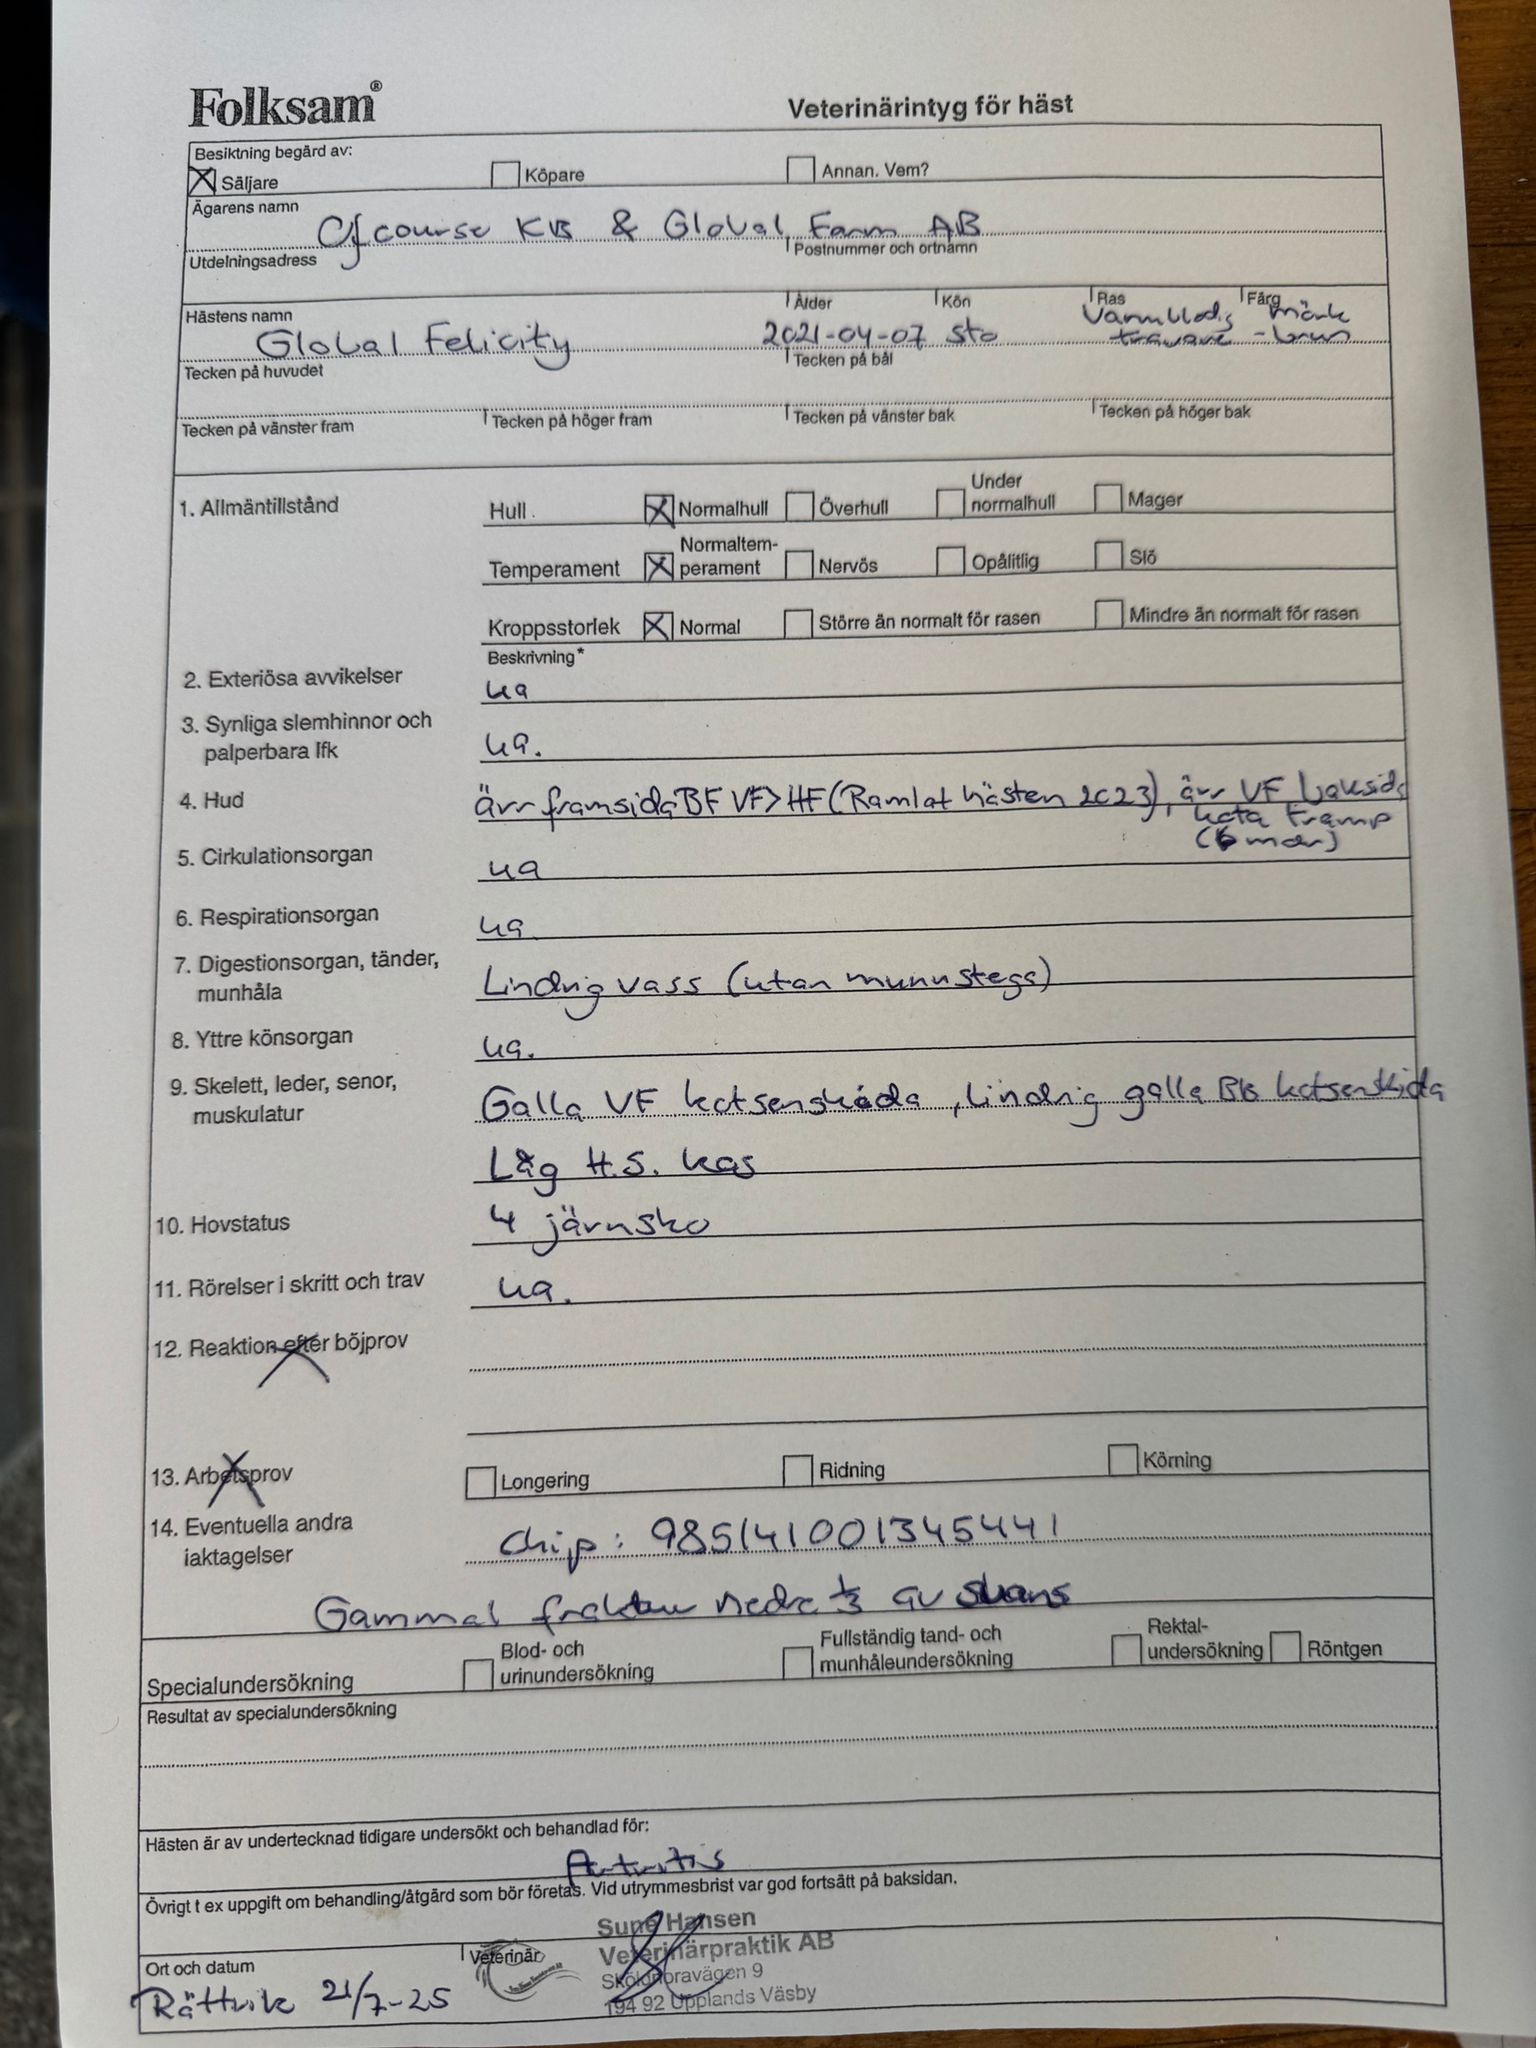 Folksam®
Veterinärintyg för häst
Besiktning begärd av:
Säljare Köpare Annan. Vem?
Ägarens namn
Ofcourse KB & Global Farm AB
Utdelningsadress Postnummer och ortnamn
Hästens namn Ålder Kön Ras Färg
Global Felicity 2021-04-07 sto Varmblodig travare mörk-brun
Tecken på huvudet Tecken på bål
Tecken på vänster fram Tecken på höger fram Tecken på vänster bak Tecken på höger bak
1. Allmäntillstånd Hull Normalhull Överhull Under normalhull Mager
Temperament Normaltem-perament Nervös Opålitlig Slö
Kroppsstorlek Normal Större än normalt för rasen Mindre än normalt för rasen
Beskrivning*
2. Exteriösa avvikelser ua
3. Synliga slemhinnor och
palperbara lfk ua.
4. Hud ärr framsida BF VF>HF (Ramlat hästen 2023), ärr VF baksida
kota tramp
(6 mån)
5. Cirkulationsorgan ua
6. Respirationsorgan ua
7. Digestionsorgan, tänder,
munhåla Lindrig vass (utan munnstega)
8. Yttre könsorgan ua.
9. Skelett, leder, senor,
muskulatur Galla VF kotsenskida, lindrig galla BB kotsenskida
Låg H.S. has
10. Hovstatus 4 järnsko
11. Rörelser i skritt och trav ua.
12. Reaktion efter böjprov
13. Arbetsprov Longering Ridning Körning
14. Eventuella andra
iaktagelser chip: 985141001345441
Gammal fraktur nedre 1/3 av svans
Specialundersökning Blod- och urinundersökning Fullständig tand- och munhåleundersökning Rektal-undersökning Röntgen
Resultat av specialundersökning
Hästen är av undertecknad tidigare undersökt och behandlad för:
Artritis
Övrigt t ex uppgift om behandling/åtgärd som bör företas. Vid utrymmesbrist var god fortsätt på baksidan.
Ort och datum Veterinär
Rättvik 21/7-25
Sune Hansen
Veterinärpraktik AB
Sköldnoravägen 9
194 92 Upplands Väsby